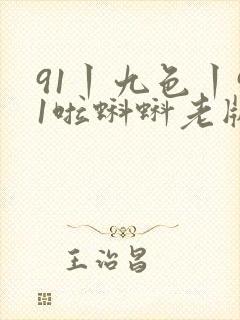 91丨九色丨9
1啦蝌蝌老版
王治昌